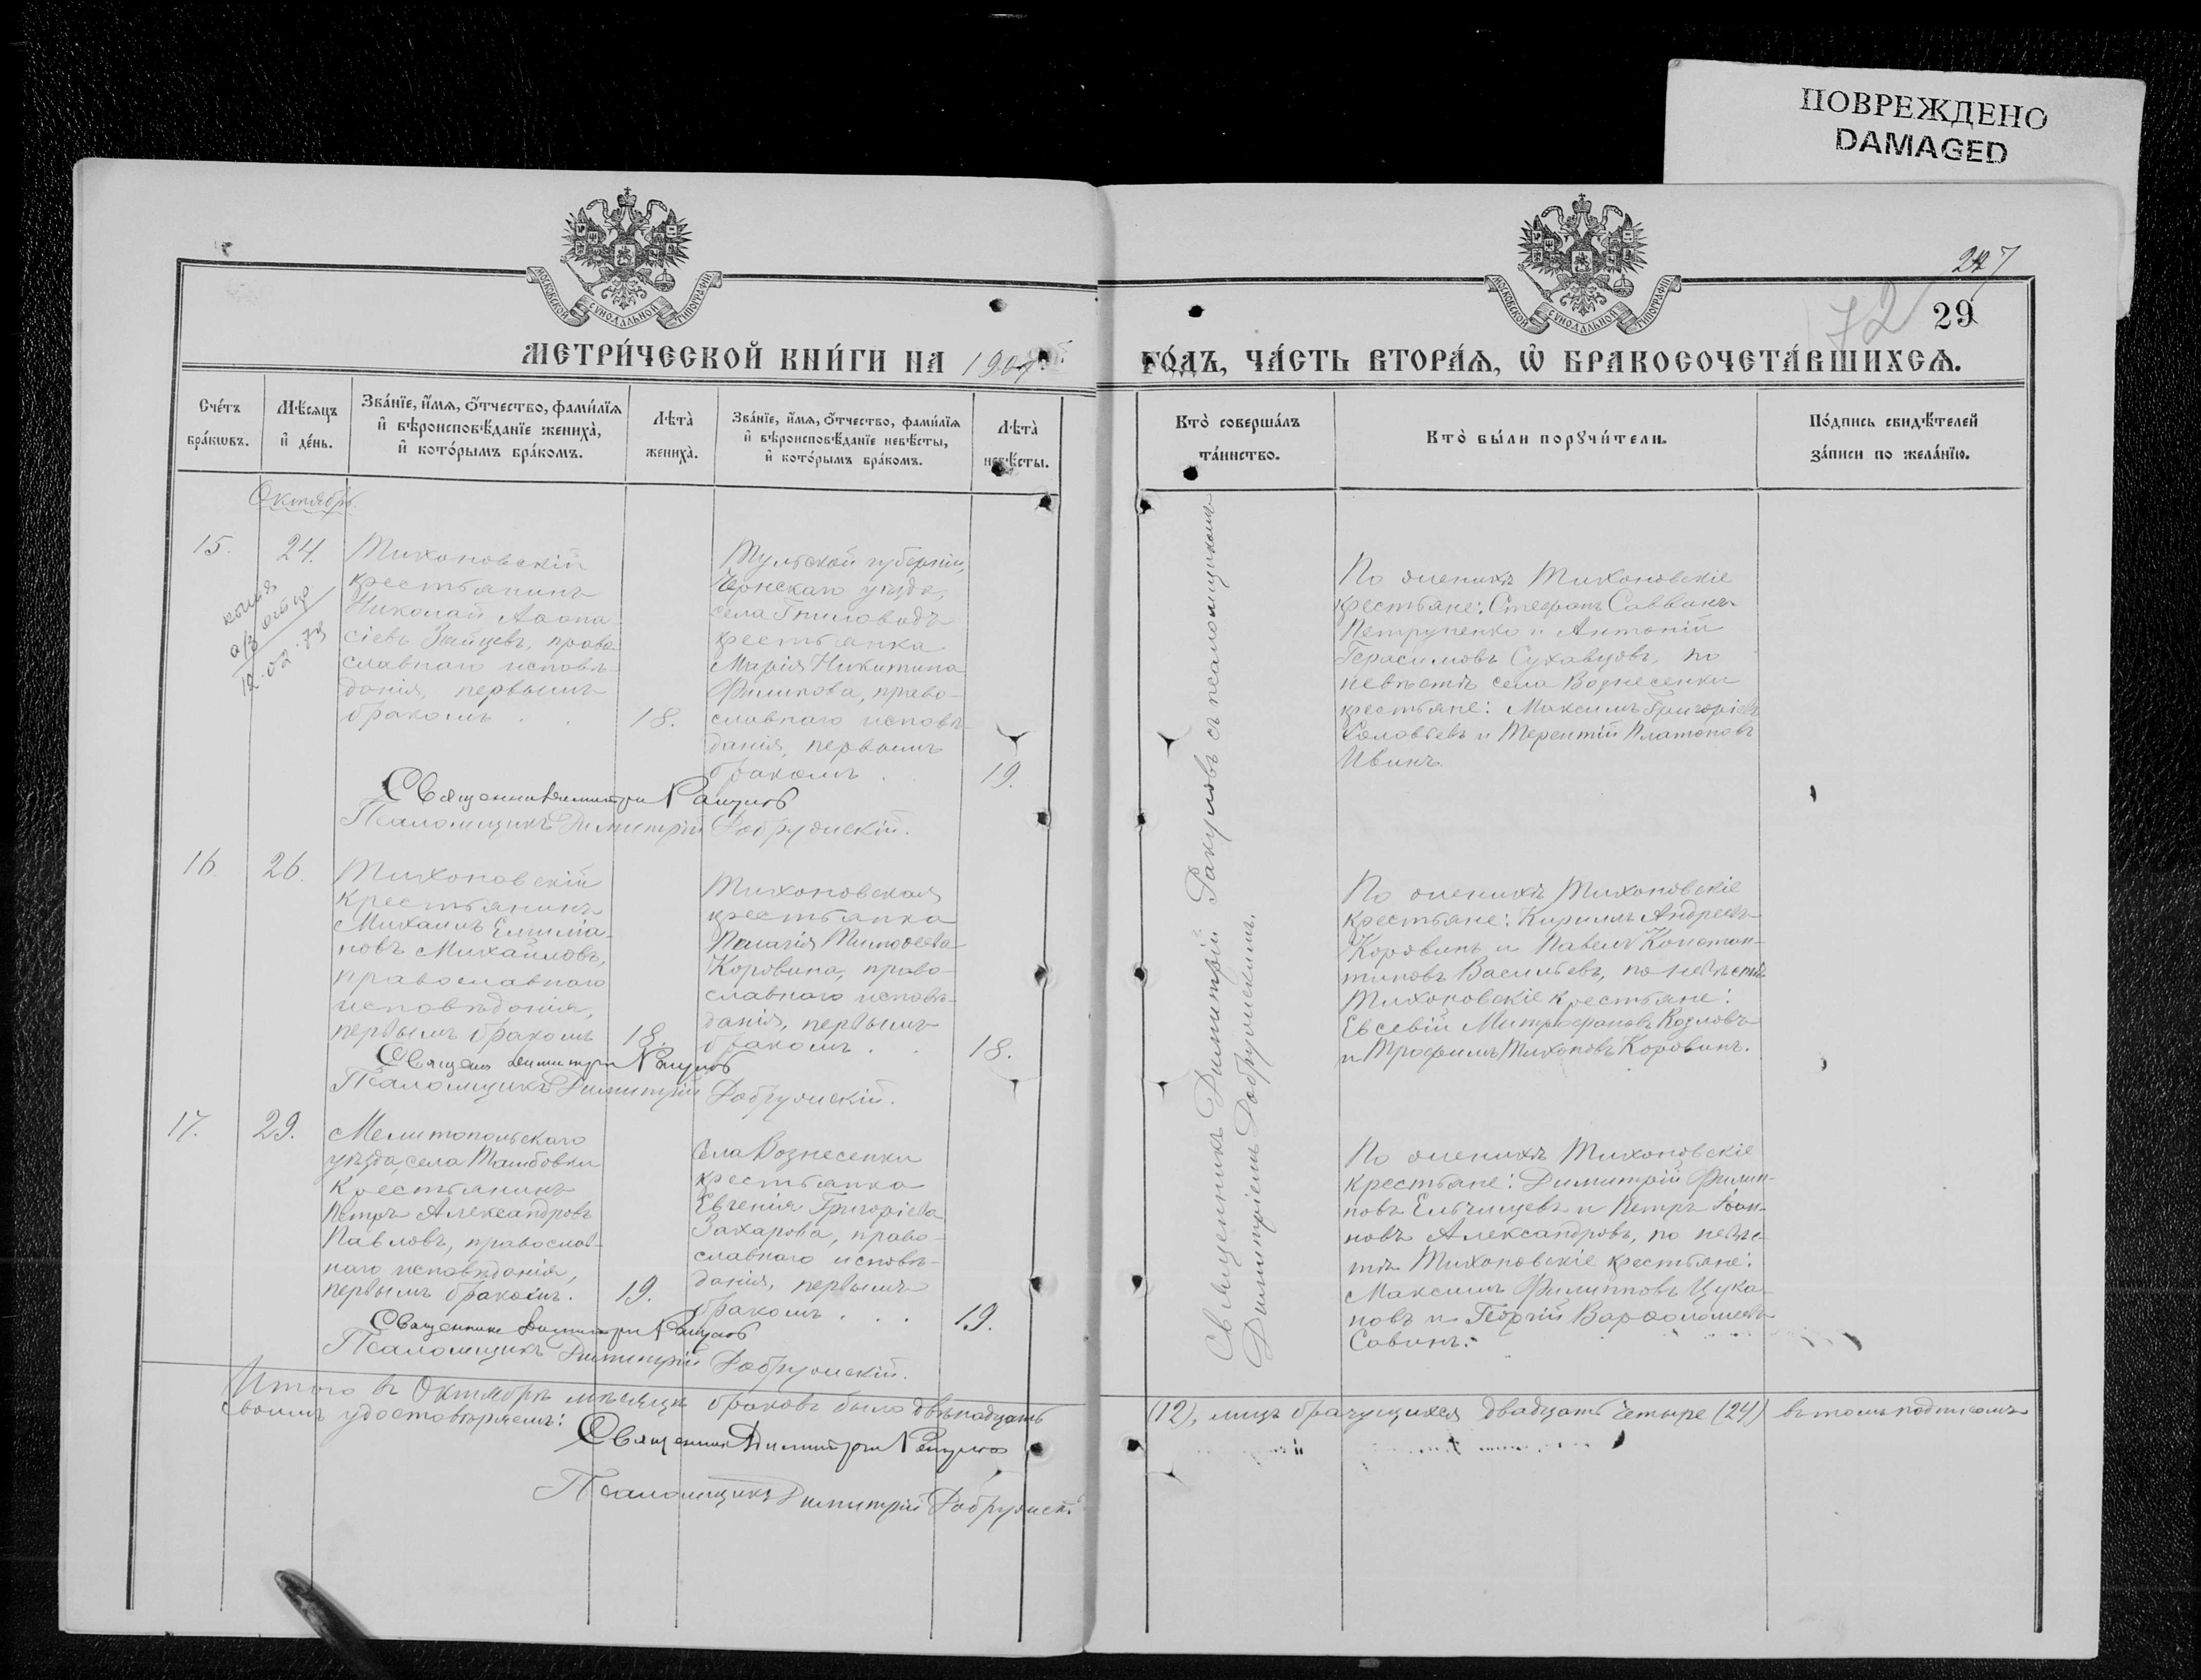 ПОВРЕЖДЕНО
DAMAGED
МОСКОВСКОЙ СѴНОДАЛЬНОЙ ТИПОГРАФІИ
МОСКОВСКОЙ СѴНОДАЛЬНОЙ ТИПОГРАФІИ
227
72
29
МЕТРИ́ЧЕСКОЙ КНИ́ГИ НА 1907
ГО́ДЪ, ЧА́СТЬ ВТОРА́Ѧ, Ѽ БРАКОСОЧЕТА́ВШИХСѦ.
Сче́тъ
бра́кѡвъ.
Мѣ́сѧцъ
и҆ де́нь.
Зва́нїе, и҆́мѧ, ѻ҆́тчество, фами́лїѧ
и҆ вѣроисповѣ́данїе жениха̀,
и҆ кото́рымъ бра́комъ.
Лѣ́та̀
жениха̀.
Зва́нїе, и҆́мѧ, ѻ҆́тчество, фами́лїѧ
и҆ вѣроисповѣ́данїе невѣ́сты,
и҆ кото́рымъ бра́комъ.
Лѣ́та̀
невѣ́сты.
Кто̀ соверша́лъ
та́инство.
Кто̀ бы́ли порꙋчи́тели.
По́дпись свидѣ́телей
за́писи по жела́нїю.
Октябрь.
15.
24.
12.02.73
Тихоновскій
крестьянинъ
Николай Аѳана-
сіевъ Зайцевъ, право-
славнаго исповѣ-
данія, первымъ
бракомъ . .
18.
Тульской губерніи,
Чернскаго уѣзда,
села Гниловодъ
крестьянка
Марія Никитина
Филипова, право-
славнаго исповѣ-
данія, первымъ
бракомъ . .
19.
По женихѣ Тихоновскіе
крестьяне: Стефанъ Саввинъ
Петрученко и Антоній
Герасимовъ Сухавцовъ, по
невѣстѣ села Вознесенки
крестьяне: Максимъ Григоріевъ
Соловьевъ и Терентій Платоновъ
Ивинъ.
Священникъ Димитрій Ракуловъ
Псаломщикъ Димитрій Добружскій.
16.
26.
Тихоновскій
крестьянинъ
Михаилъ Емиліа-
новъ Михайловъ,
православнаго
исповѣданія,
первымъ бракомъ
18.
Тихоновская
крестьянка
Пелагія Тимоѳеева
Коровина, право-
славнаго исповѣ-
данія, первымъ
бракомъ . .
18.
По женихѣ Тихоновскіе
крестьяне: Кириллъ Андреевъ
Коровинъ и Павелъ Констан-
тиновъ Васильевъ, по невѣстѣ
Тихоновскіе крестьяне:
Евсевій Митрофановъ Козловъ
и Трофимъ Тихоновъ Коровинъ.
Священ Димитрій Ракуловъ
Псаломщикъ Димитрій Добружскій.
17.
29.
Мелитопольскаго
уѣзда, села Тамбовки
крестьянинъ
Петръ Александровъ
Павловъ, православ-
наго исповѣданія,
первымъ бракомъ.
19.
Села Вознесенки
крестьянка
Евгенія Григоріева
Захарова, право-
славнаго исповѣ-
данія, первымъ
бракомъ . . .
19.
По женихѣ Тихоновскіе
крестьяне: Димитрій Филип-
повъ Ельчищевъ и Петръ Іоан-
новъ Александровъ, по невѣс-
тѣ Тихоновскіе крестьяне:
Максимъ Филипповъ Цука-
новъ и Георгій Варѳоломеевъ
Савинъ.
Священникъ Димитрій Ракуловъ
Псаломщикъ Димитрій Добружскій.
Священникъ Димитрій Ракуловъ съ псаломщикомъ
Димитріемъ Добружскимъ.
Итого въ Октябрѣ мѣсяцѣ браковъ было двѣнадцать (12), лицъ брачущихся двадцать четыре (24) въ томъ подписомъ
своимъ удостовѣряемъ:
Священникъ Димитрій Ракуловъ
Псаломщикъ Димитрій Добружск.